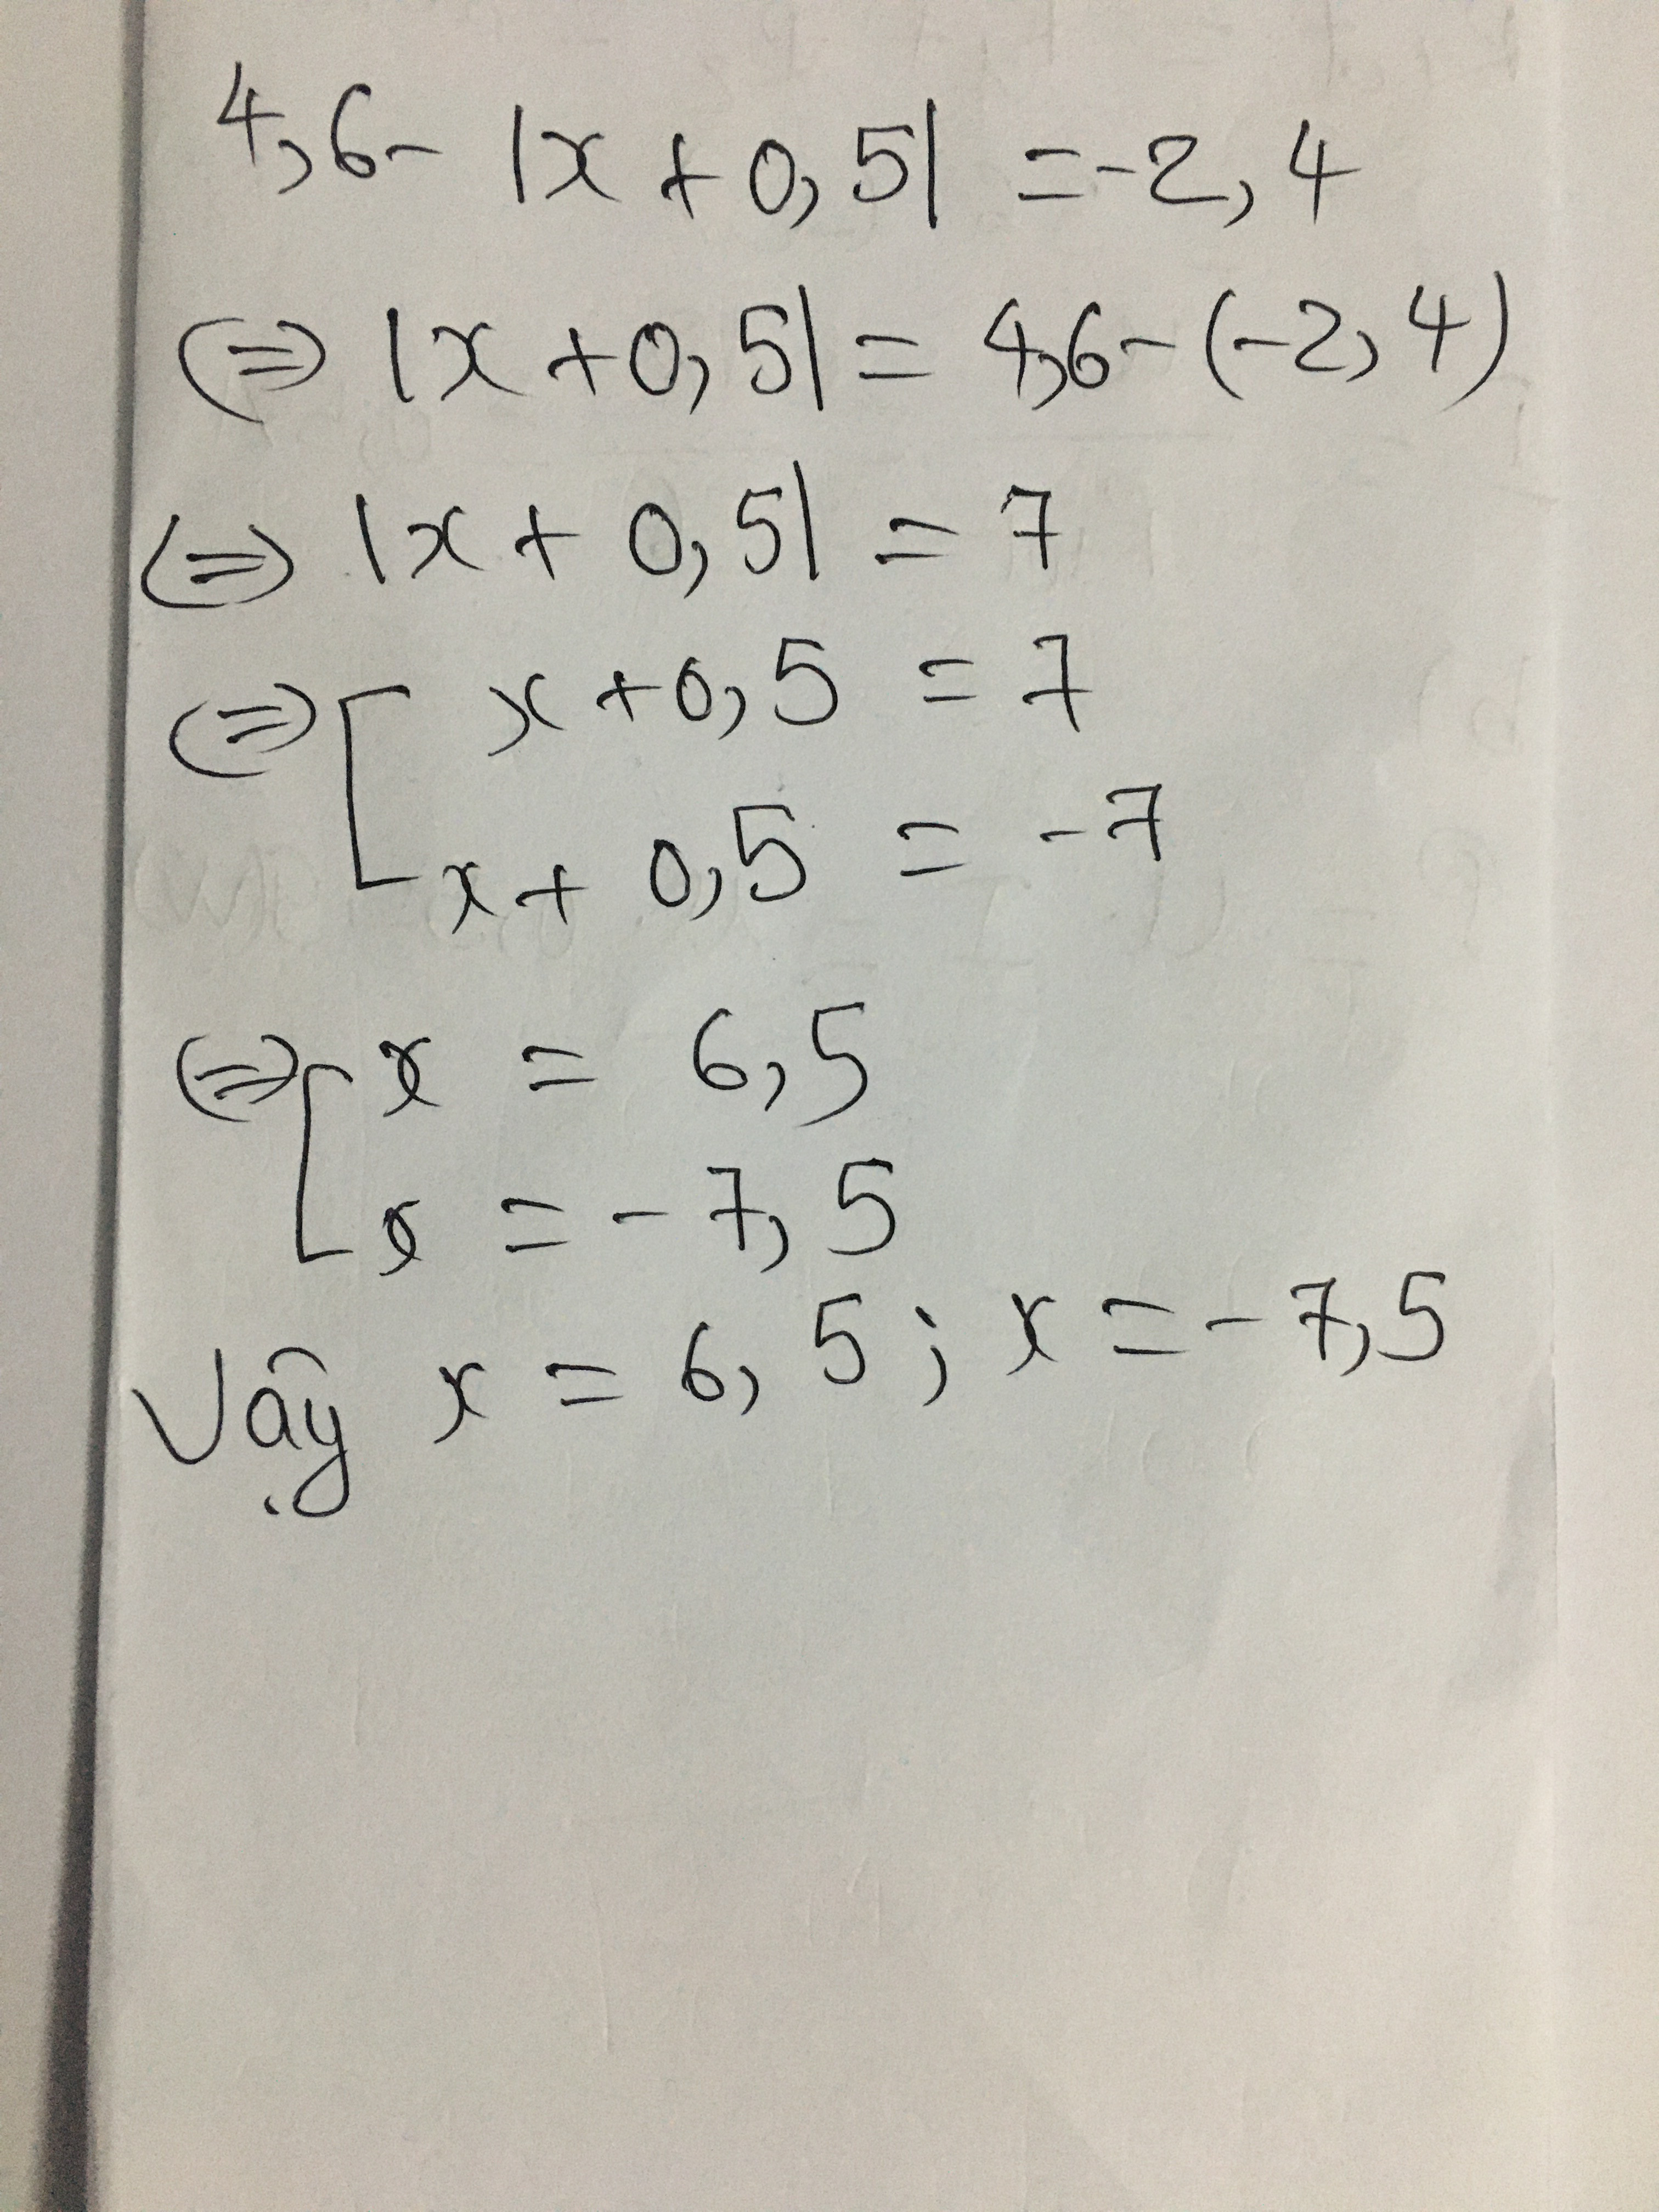 4,6 - |x + 0,5| = -2,4
(=) |x + 0,5| = 4,6 - (-2,4)
(=) |x + 0,5| = 7
(=) [ x + 0,5 = 7
x + 0,5 = -7
(=) [ x = 6,5
x = -7,5
Vậy x = 6,5 ; x = -7,5